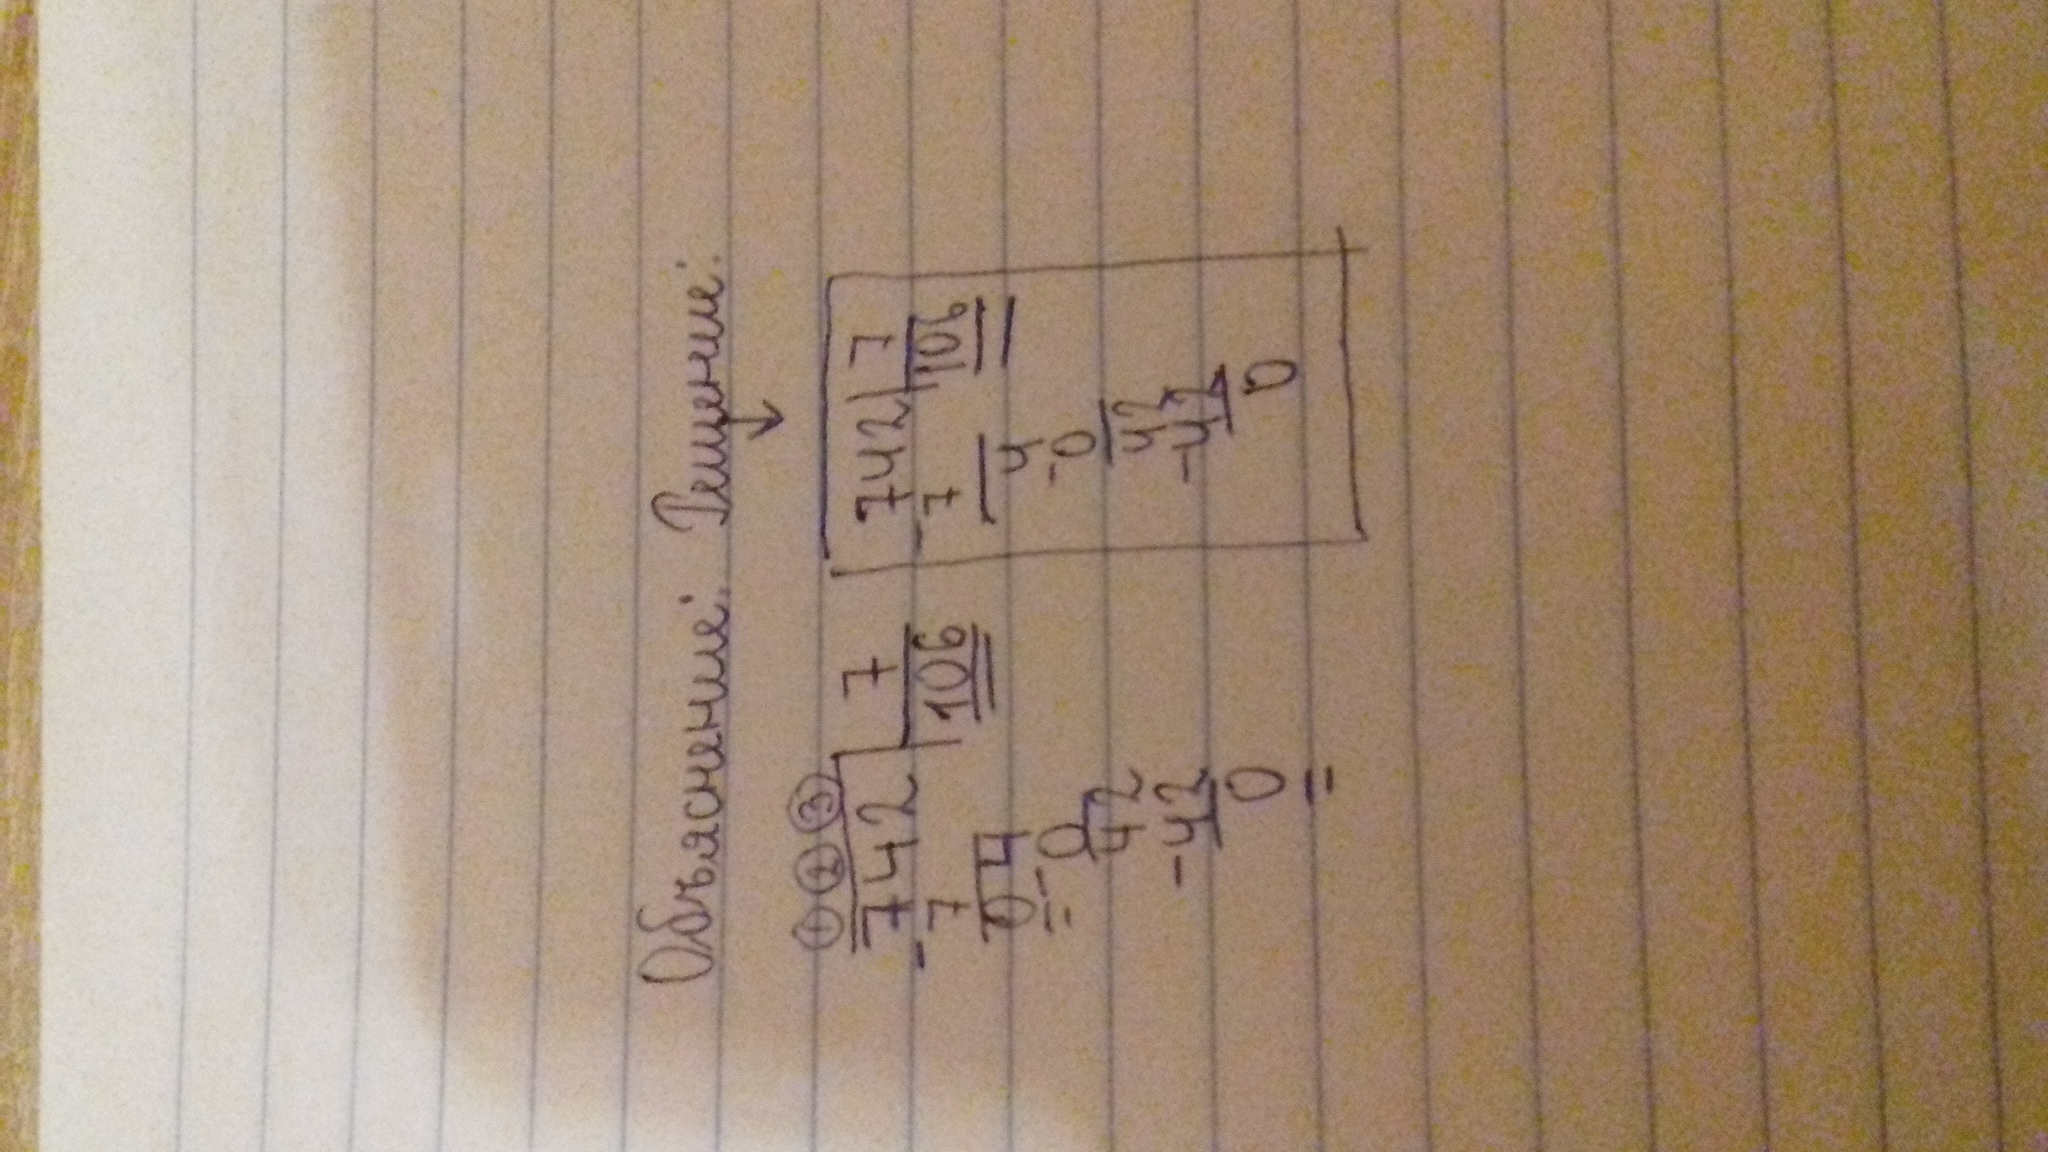 Объяснение: Решение:
↓
① ② ③
7442 | 7 7442 | 7
- 7 106 - 7 106
04 4
- 0 - 0
42 42
- 42 - 42
0 0